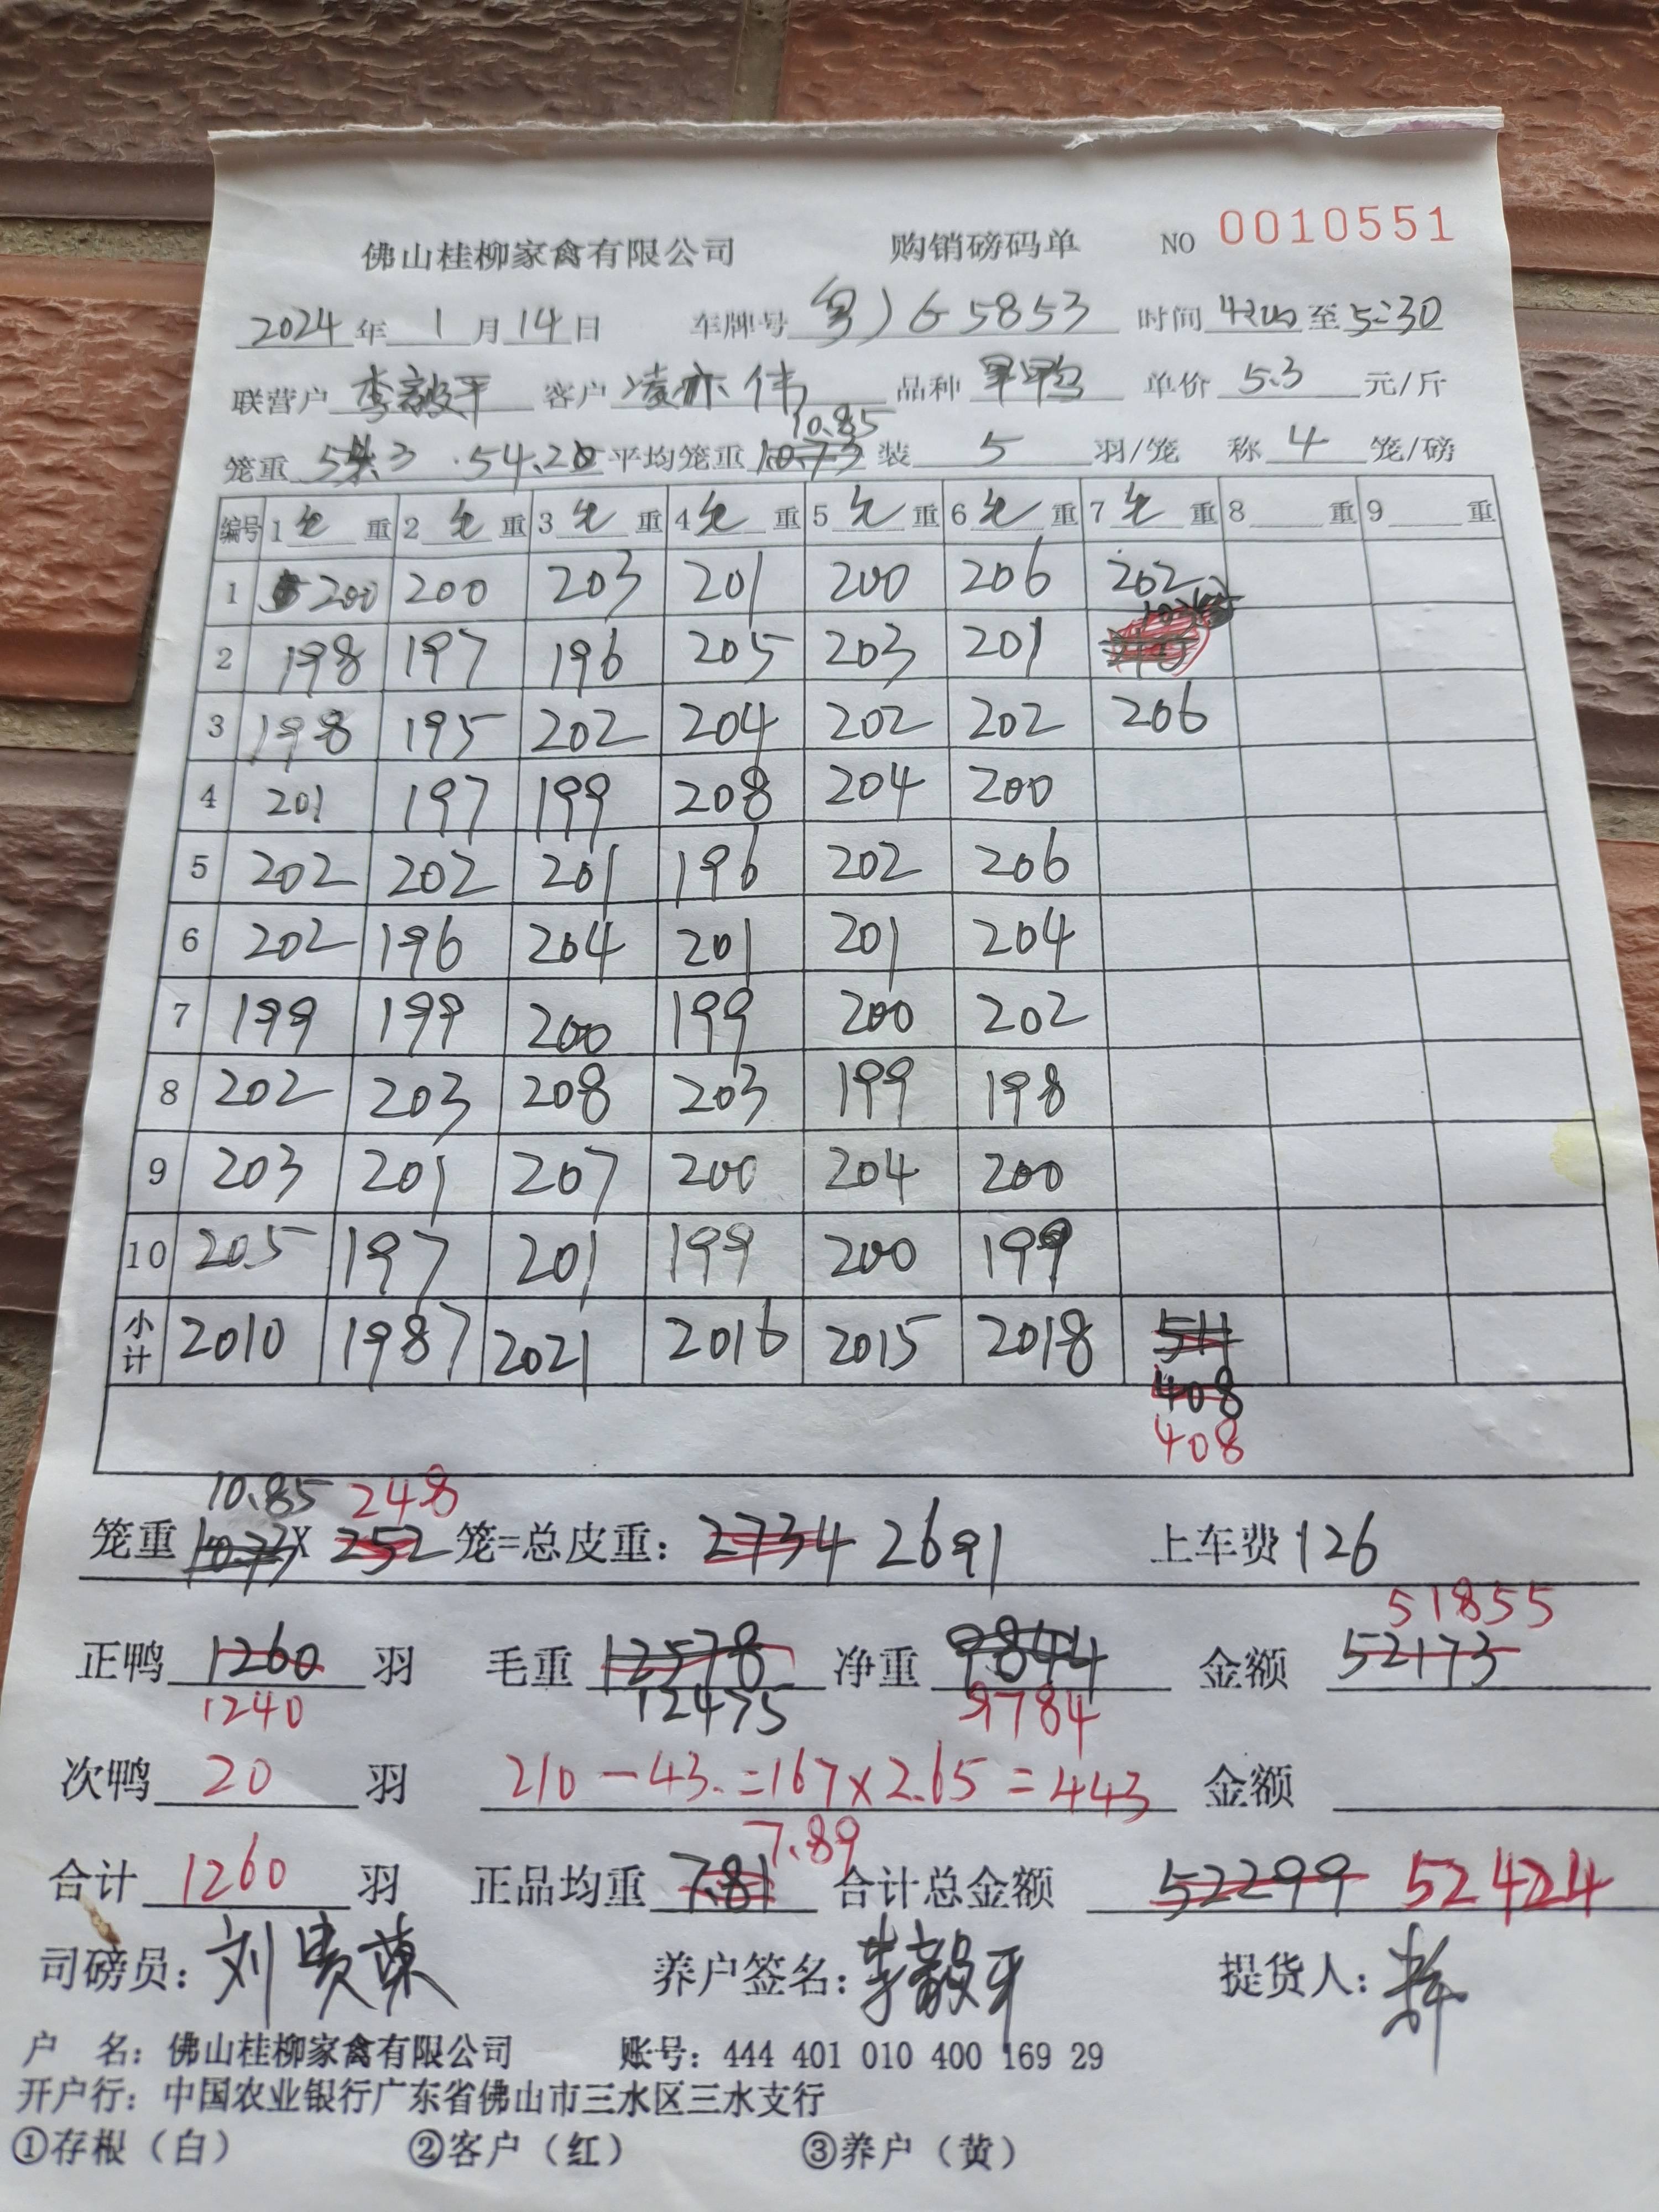 佛山桂柳家禽有限公司 购销磅码单 NO 0010551
2024年1月14日 车牌号 粤J G5853 时间 至 5:30
联营户 李毅平 客户 凌亦伟 品种 单价 5.3 元/斤
10.85
笼重 54.20 平均笼重 10.73 装 5 羽/笼 称 4 笼/磅
编号 1 毛 重 2 毛 重 3 毛 重 4 毛 重 5 毛 重 6 毛 重 7 毛 重 8 重 9 重
1 200 200 203 201 200 206 202
2 198 197 196 205 203 201
3 198 195 202 204 202 202 206
4 201 197 199 208 204 200
5 202 202 201 196 202 206
6 202 196 204 201 201 204
7 199 199 200 199 200 202
8 202 203 208 203 199 198
9 203 201 207 200 204 200
10 205 197 201 199 200 199
小计 2010 1987 2021 2016 2015 2018 511
408
408
10.85 248
笼重 10.73 X 252 笼=总皮重: 2734 2691 上车费 126
51855
正鸭 1260 羽 毛重 12578 净重 9844 金额 52173
1240 12475 9784
次鸭 20 羽 210-43.=167×2.65=443 金额
7.89
合计 1260 羽 正品均重 7.81 合计总金额 52299 52424
司磅员: 刘贵荣 养户签名: 李毅平 提货人:
户 名: 佛山桂柳家禽有限公司 账号: 444 401 010 400 169 29
开户行: 中国农业银行广东省佛山市三水区三水支行
①存根(白) ②客户(红) ③养户(黄)